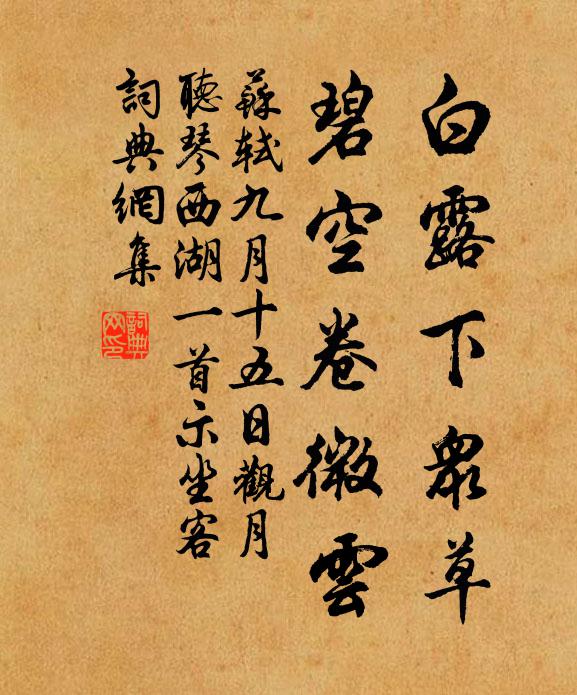 白露下眾草
碧空卷微雲
蘇軾九月十五日觀月
聽琴西湖一首示坐客
詞典網集
詞典
网印